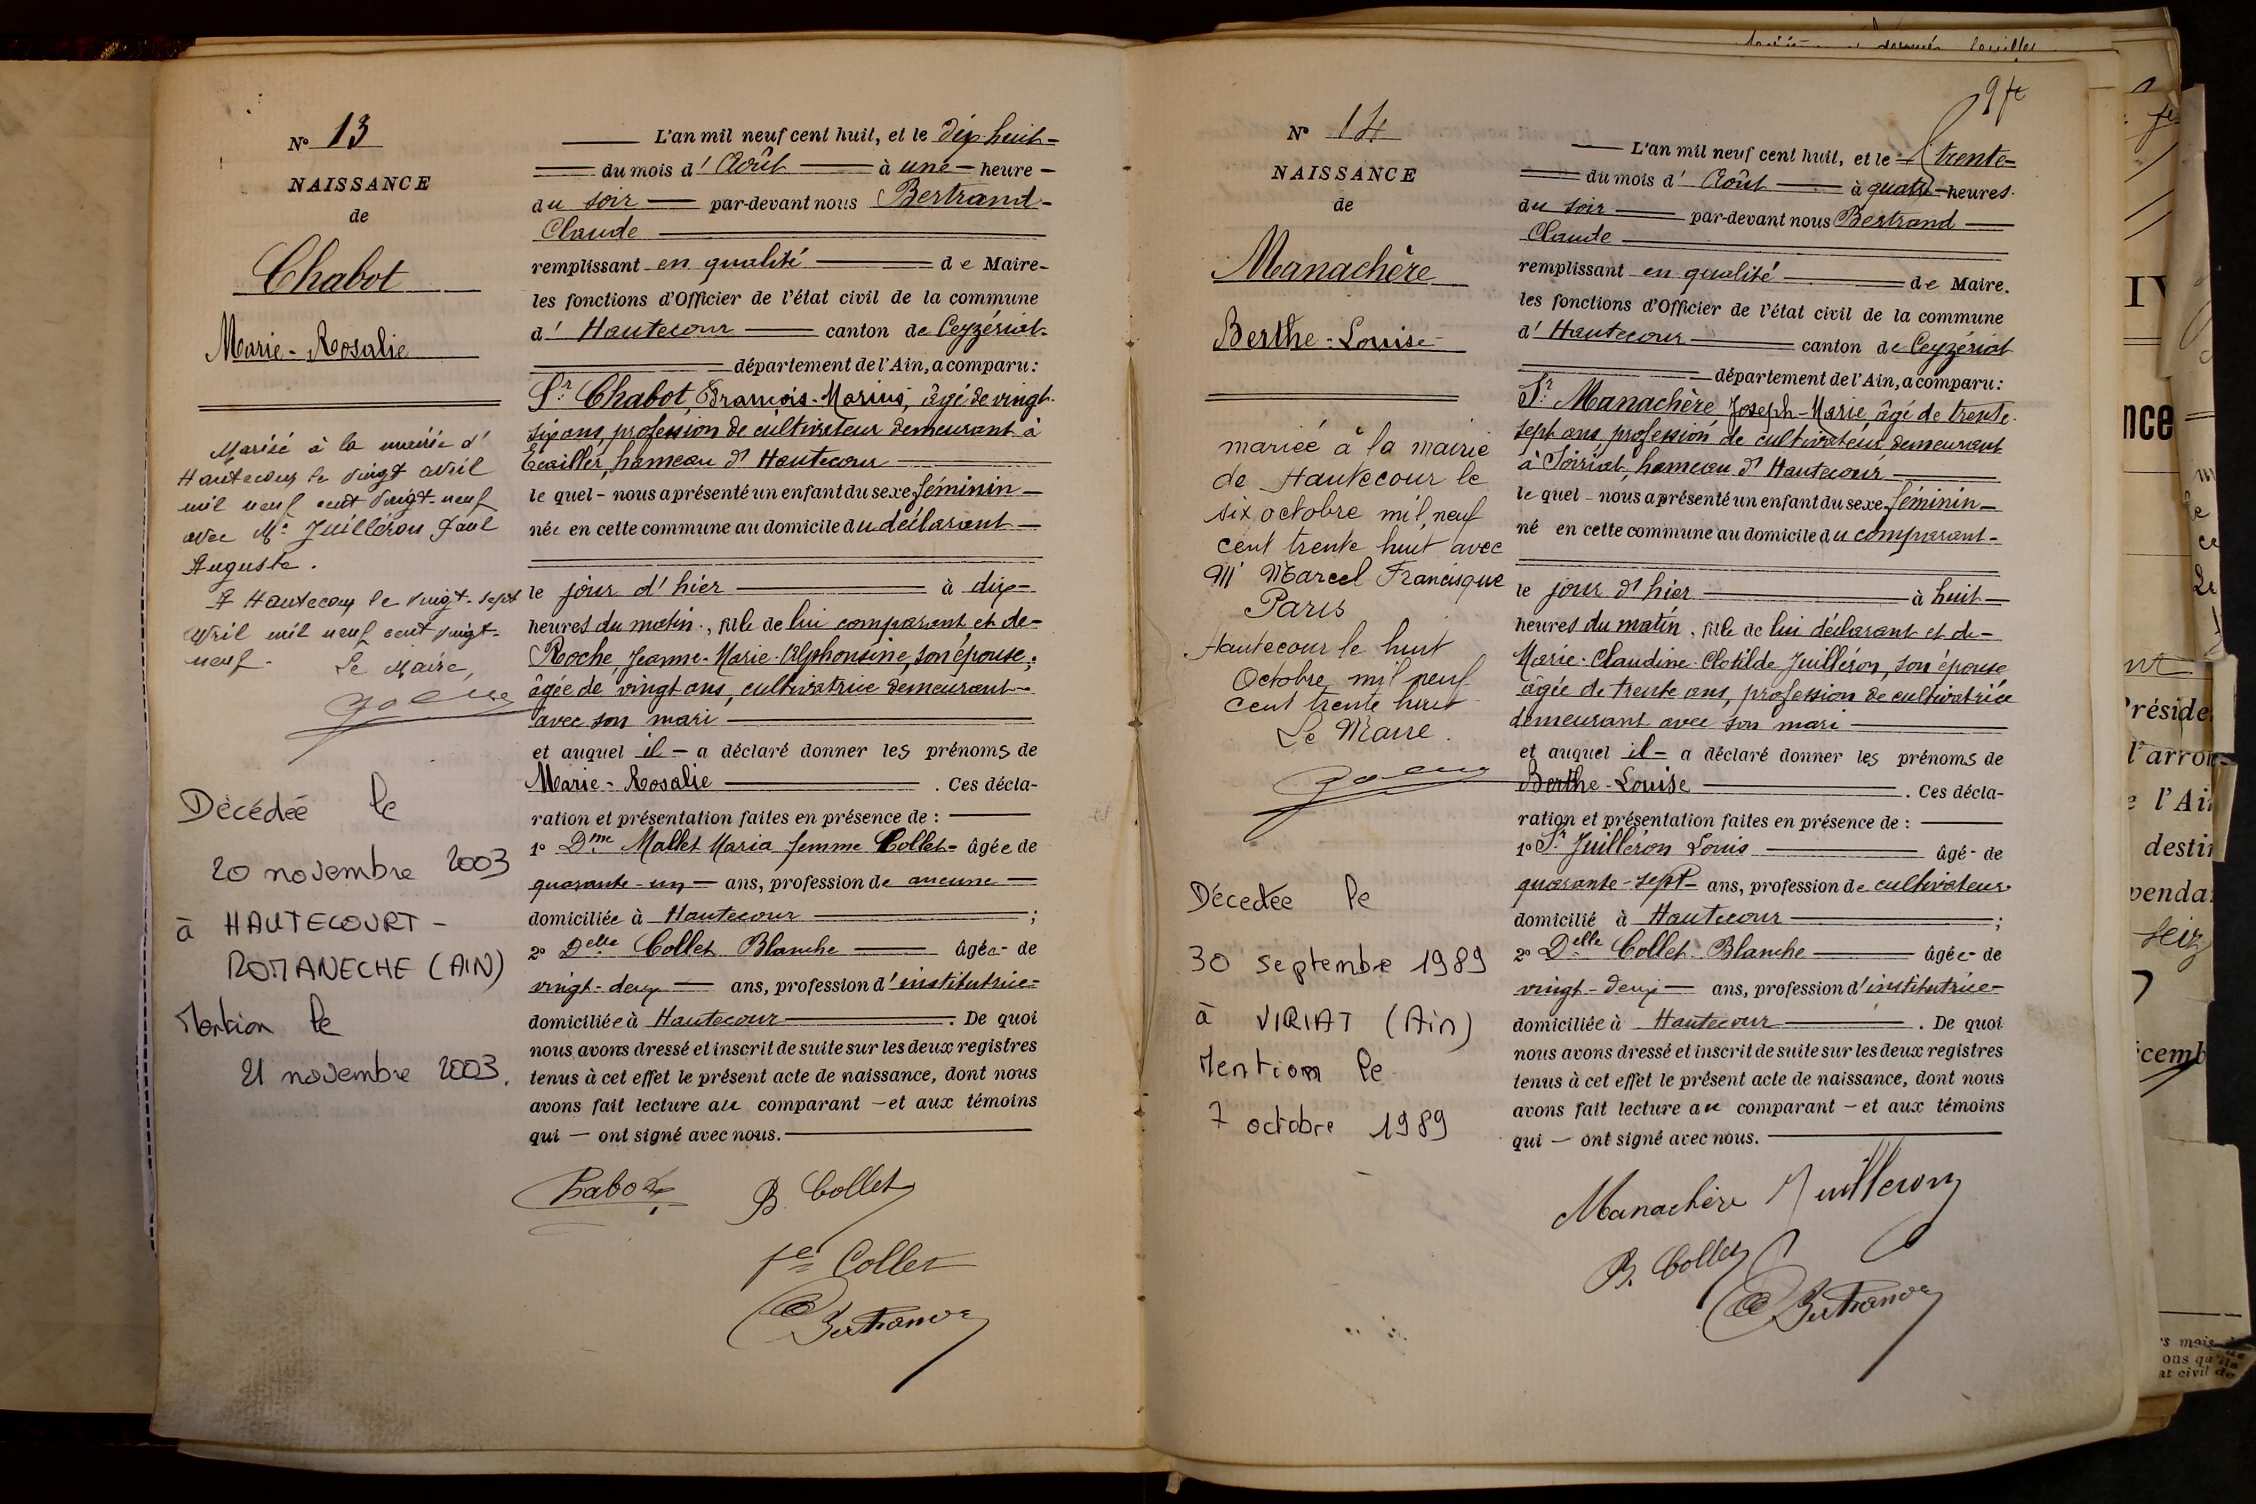 N° 13
NAISSANCE
de
Chabot
Marie-Rosalie
Mariée à la mairie d'
Hautecour le vingt avril
mil neuf cent vingt-neuf
avec Mr Juilléron Paul
Auguste.
A Hautecour le vingt-sept
avril mil neuf cent vingt-
neuf.
Le Maire,
Décédée le
20 novembre 2003
à HAUTECOURT-
ROMANECHE (AIN)
Mention le
21 novembre 2003.
L'an mil neuf cent huit, et le dix-huit
du mois d'Août à une heure
du soir par-devant nous Bertrand
Claude
remplissant en qualité de Maire
les fonctions d'Officier de l'état civil de la commune
d'Hautecour canton de Ceyzériat
département de l'Ain, a comparu:
Sr Chabot, François-Marius, âgé de vingt
six ans, profession de cultivateur demeurant à
hameau d'Hautecour
le quel nous a présenté un enfant du sexe féminin
née en cette commune au domicile du déclarant
le jour d'hier à dix
heures du matin, fille de lui comparant et de
Roche Jeanne-Marie-Alphonsine, son épouse,
âgée de vingt ans, cultivatrice demeurant
avec son mari
et auquel il a déclaré donner les prénoms de
Marie-Rosalie. Ces décla-
ration et présentation faites en présence de :
1° Dme Mallet Maria femme Collet âgée de
quarante-un ans, profession de aucune
domiciliée à Hautecour ;
2° Delle Collet Blanche âgée de
vingt-deux ans, profession d'institutrice
domiciliée à Hautecour. De quoi
nous avons dressé et inscrit de suite sur les deux registres
tenus à cet effet le présent acte de naissance, dont nous
avons fait lecture au comparant et aux témoins
qui ont signé avec nous.
Chabot B. Collet
fe Collet
Bertrand
9 fe
N° 14
NAISSANCE
de
Manachère
Berthe-Louise
mariée à la mairie
de Hautecour le
six octobre mil neuf
cent trente huit avec
Mr Marcel Francisque
Paris
Hautecour le huit
Octobre mil neuf
cent trente huit
Le Maire.
Décedée le
30 septembre 1989
à VIRIAT (Ain)
Mention le
7 octobre 1989
L'an mil neuf cent huit, et le trente
du mois d'Août à quatre heures
du soir par-devant nous Bertrand
Claude
remplissant en qualité de Maire.
les fonctions d'Officier de l'état civil de la commune
d'Hautecour canton de Ceyzériat
département de l'Ain, a comparu:
Sr Manachère Joseph-Marie âgé de trente
sept ans, profession de cultivateur demeurant
à Soiriat, hameau d'Hautecour
le quel nous a présenté un enfant du sexe féminin
né en cette commune au domicile du comparant
le jour d'hier à huit
heures du matin, fille de lui déclarant et de
Marie-Claudine-Clotilde Juilléron, son épouse
âgée de trente ans, profession de cultivatrice
demeurant avec son mari
et auquel il a déclaré donner les prénoms de
Berthe-Louise. Ces décla-
ration et présentation faites en présence de :
1° Sr Juilléron Louis âgé de
quarante-sept ans, profession de cultivateur
domicilié à Hautecour ;
2° Delle Collet Blanche âgée de
vingt-deux ans, profession d'institutrice
domiciliée à Hautecour. De quoi
nous avons dressé et inscrit de suite sur les deux registres
tenus à cet effet le présent acte de naissance, dont nous
avons fait lecture au comparant et aux témoins
qui ont signé avec nous.
Manachère Juilleron
B. Collet
Bertrand